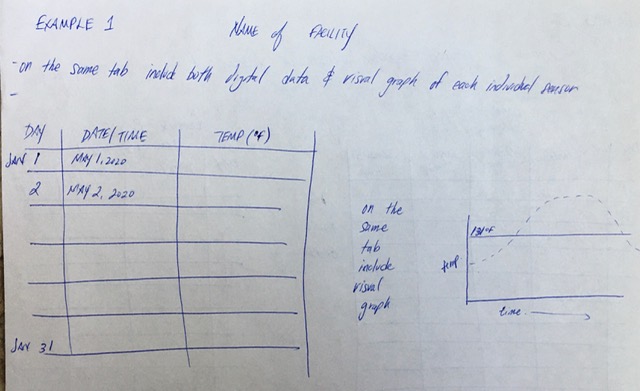 EXAMPLE 1
NAME of FACILITY
- on the same tab include both digital data & visual graph of each individual sensor
-
DAY DATE/TIME TEMP (°F)
JAN 1 MAY 1, 2020
2 MAY 2, 2020
JAN 31
on the
same
tab
include
visual
graph
131°F
temp
time